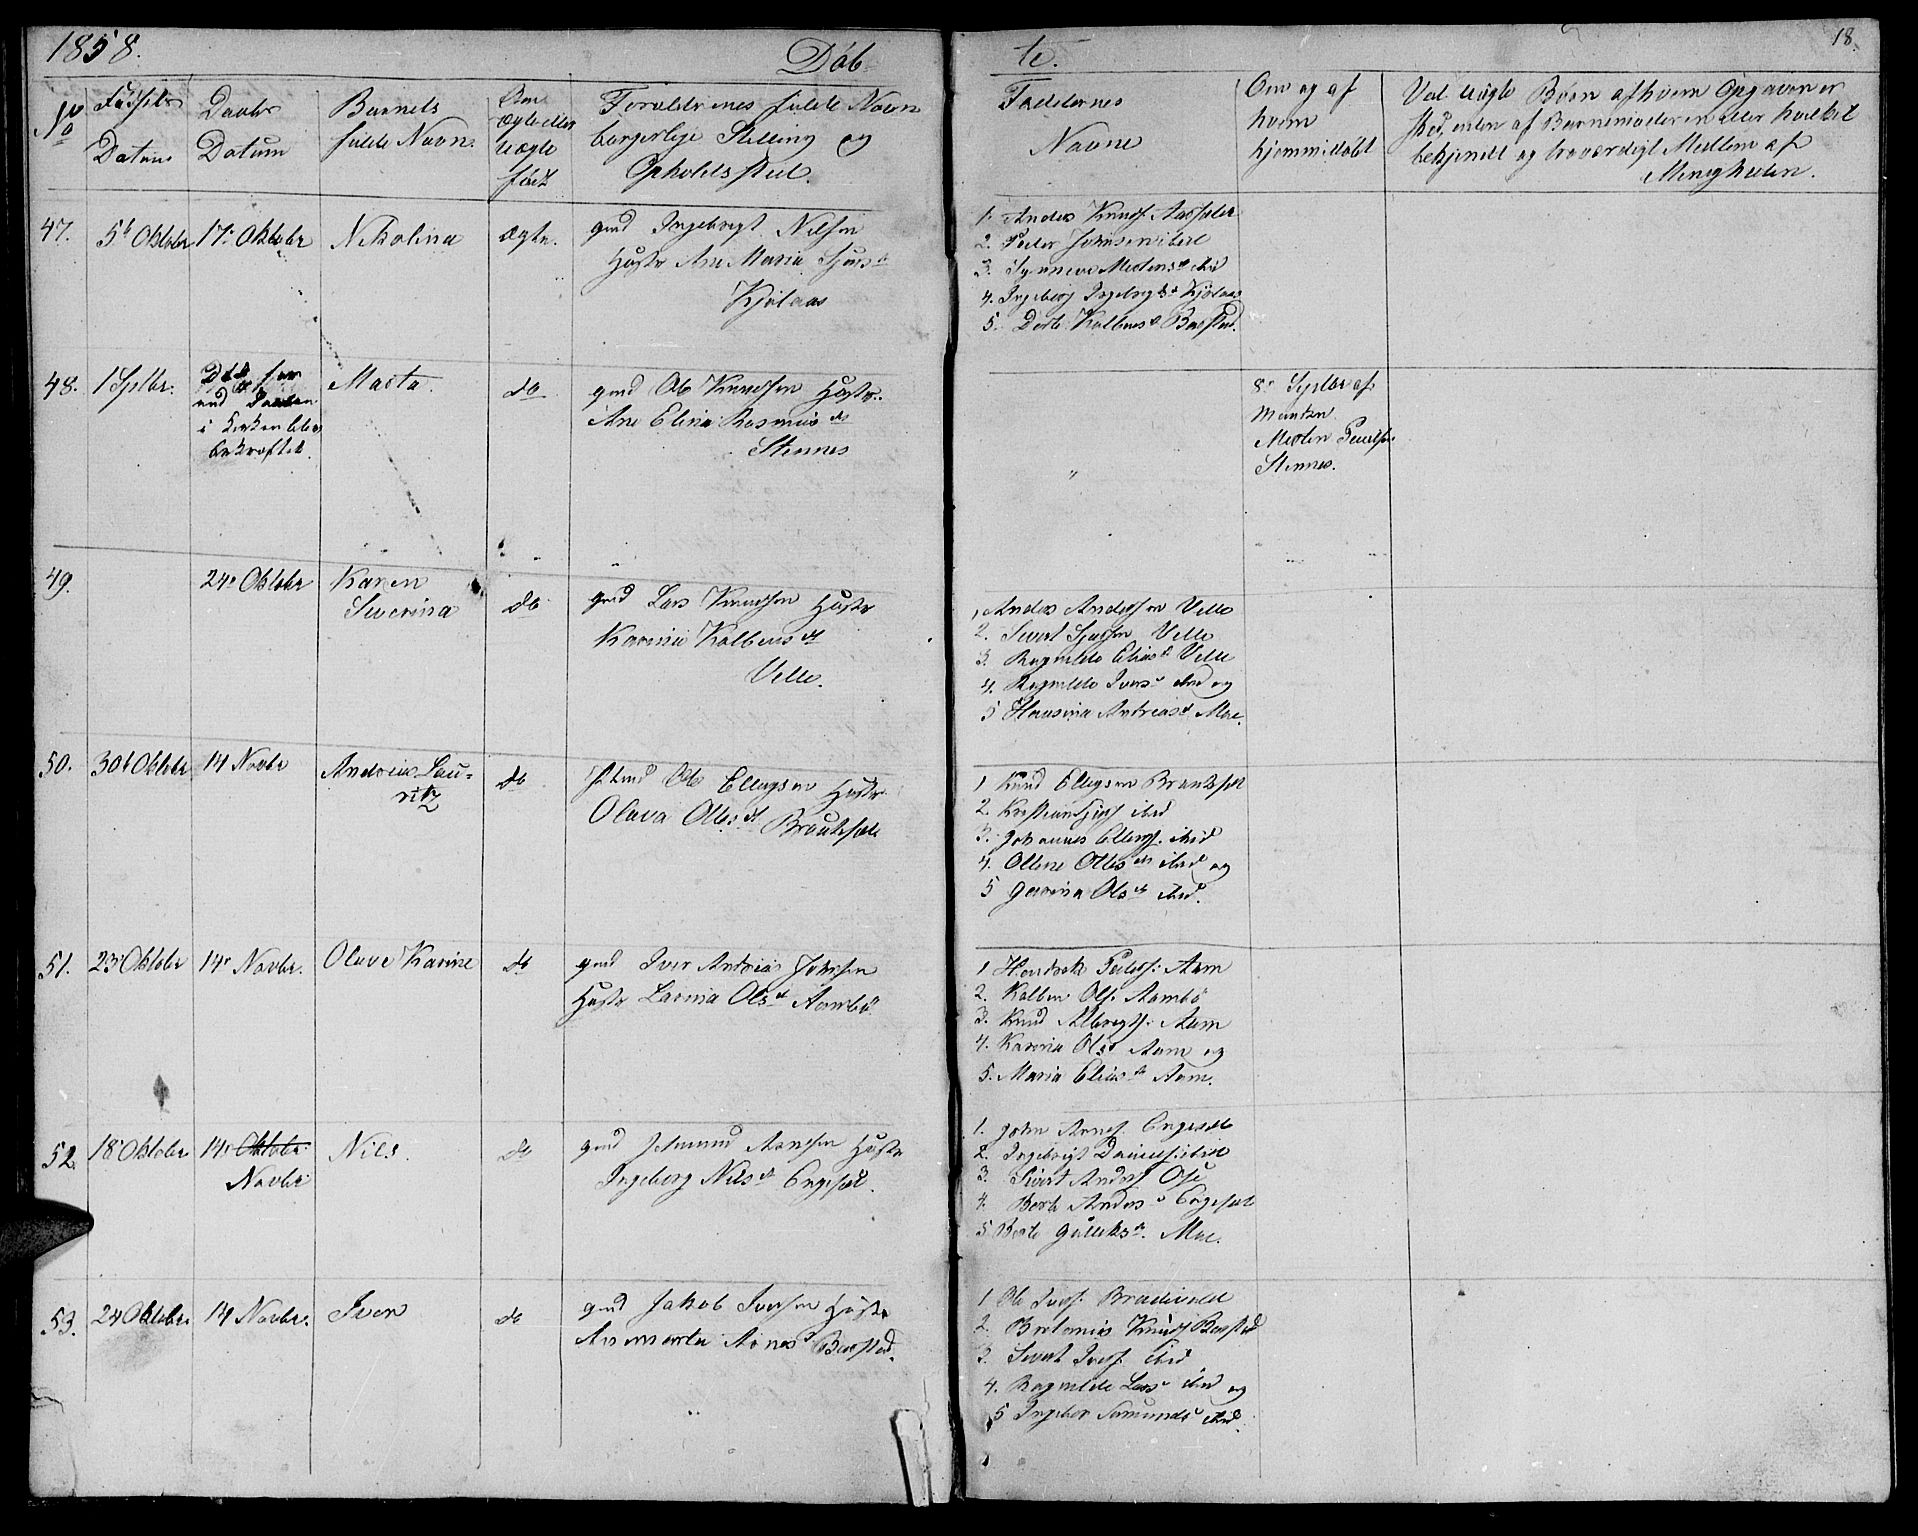 1858.
Døb
te.
18.
No
Fødsels
Datum
Daabs
Datum
Barnets
fulde Navn.
Om
ægte eller
uægte
født
Forældrenes fulde Navn
borgerlige Stilling og
Opholdssted.
Faddernes
Navne
Om og af
hvem
hjemmedøbt
Ved uægte Børn af hvem Opgaven er
sked, enten af Barnemoderen eller hvilket
bekjendt og troværdigt Medlem af
Menigheden.
47.
5t Oktober
17. Oktober
Nikolina
Ægte.
gmd Ingebrigt Nilsen
Hustr Ane Maria
Kjølaas
1. Anders Knuds.
2. Peder Johnsen ibid
3. Synneva Mortensd ibid
4. Ingeborg Ingebrigtsd Kjølaas
5. Dorte Kolbens d Baastad.
48.
1 Septbr.
i Kirken blev
bekræftet.
Marta.
do
gmd Ole Knudsen Hustr.
Ane Elina Rasmus dt
Stennes
"
8. Septbr af
Manden
Stennes.
49.
24. Oktober
Karen
Severina
do
gmd Lars Knudsen Hustr
Karina Kolbens dt
Velle.
1. Anders Andersen Velle
2. Sivert Velle
3. Ragnilde Elias d Velle
4. Ragnilde Ivers d ibid og
5 Hansina Andreas d. Moe.
50.
30t Oktober
14 Novbr
Andreas Lau-
ritz
do
Ole Ellingsen Hustr
Olava Oles dt
1 Knud Ellingsen
2. Kristian ibid
3. Johannes Ellings. ibid
4. Oline Oles dt ibid og
5 Gurina Ols dt ibid.
51.
23. Oktober
14. Novbr.
Olave Karine
do
gmd Iver Andreas Johnsen
Hustr Larina Ols dt Aambø
1 Peders. Aam
2. Kolben Ols. Aambø
3. Knud Albregts. Aam
4. Karina Olsd Aam og
5. Maria Elias dt Aam.
52.
18. Oktober
14. Oktober
Novbr
Nils.
do
gmd Arnesen Hustr
Ingeborg Nils d Engeset.
1. John Arnes. Engeset
2. Ingebrigt Daniels. ibid
3. Sivert Anders. Ose
4. Berte Anders d Engeset
5. Berte d. Moe.
53.
24 Oktober
14 Novbr.
Iver
do
gmd Jakob Iversen Hustr
Anemarta Arnes d Baastad.
1 Ole Ivers.
2. Knuds Baastad
3. Sivert Ivers. ibid
4. Ragnilde Lars d ibid og
5 Ingebor ibid.